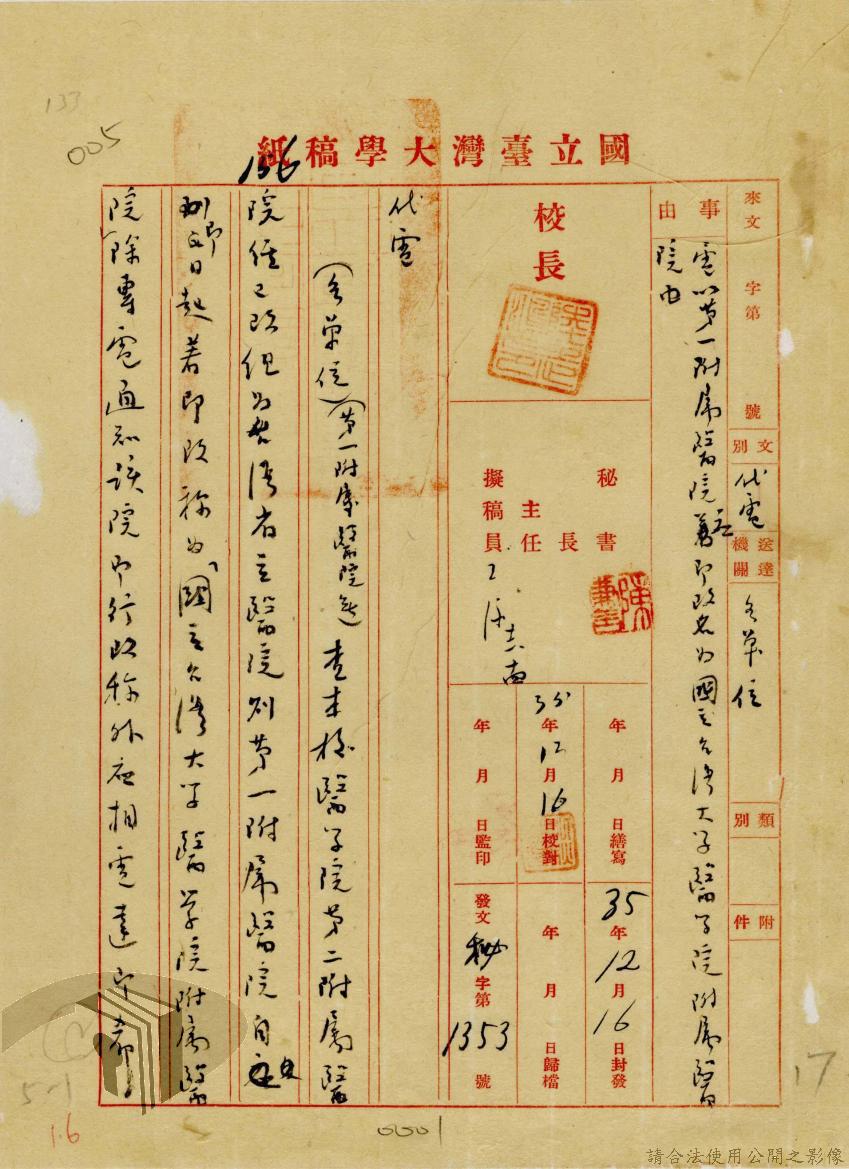 133
005
國立臺灣大學稿紙
136
來文 字第 號
文別
代電
送達機關
各單位
類別
附件
事由
電以第一附屬醫院著即改名為國立台灣大学醫学院附属醫
院由
校長
秘書長
主任
擬稿員
年 月 日繕寫
35年12月16日校對
年 月 日監印
35年12月16日封發
年 月 日歸檔
發文秘字第1353號
代電
(各單位)(第一附屬醫院 查本校醫学院第二附屬醫
院経已改組为台湾省立醫院則第一附屬醫院自
即日起著即改称为「國立台灣大学醫学院附屬醫
院」除專電通知該院即行改称外应相電達即希
5-1
16
0001
17
請合法使用公開之影像